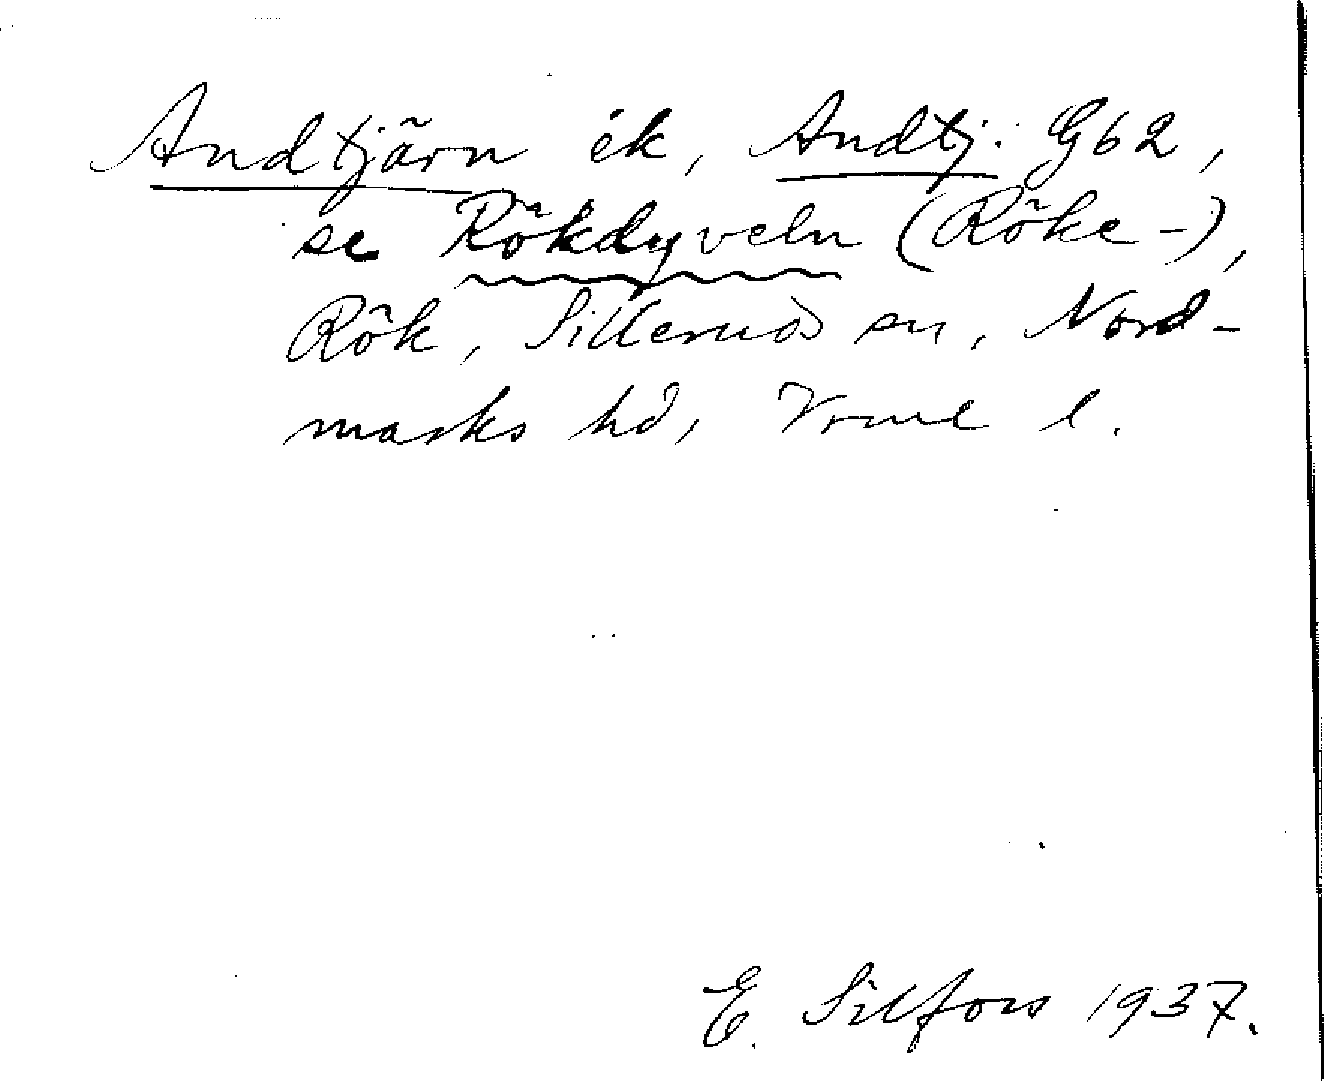 Andtjärn ék, Andtj: G62,
se Rökdyveln (Röke-),
Rök, Silleruds sn, Nord-
marks hd, Vrml l.
E. Silfors 1937.